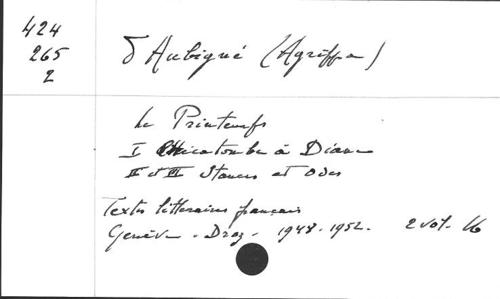 424
265
2
d'Aubigné (Agrippa)
Le Printemps
I Hécatombe à Diane
II et III Stances et Odes
Textes littéraires français
Genève - Droz - 1948-1952. 2 vol. 16